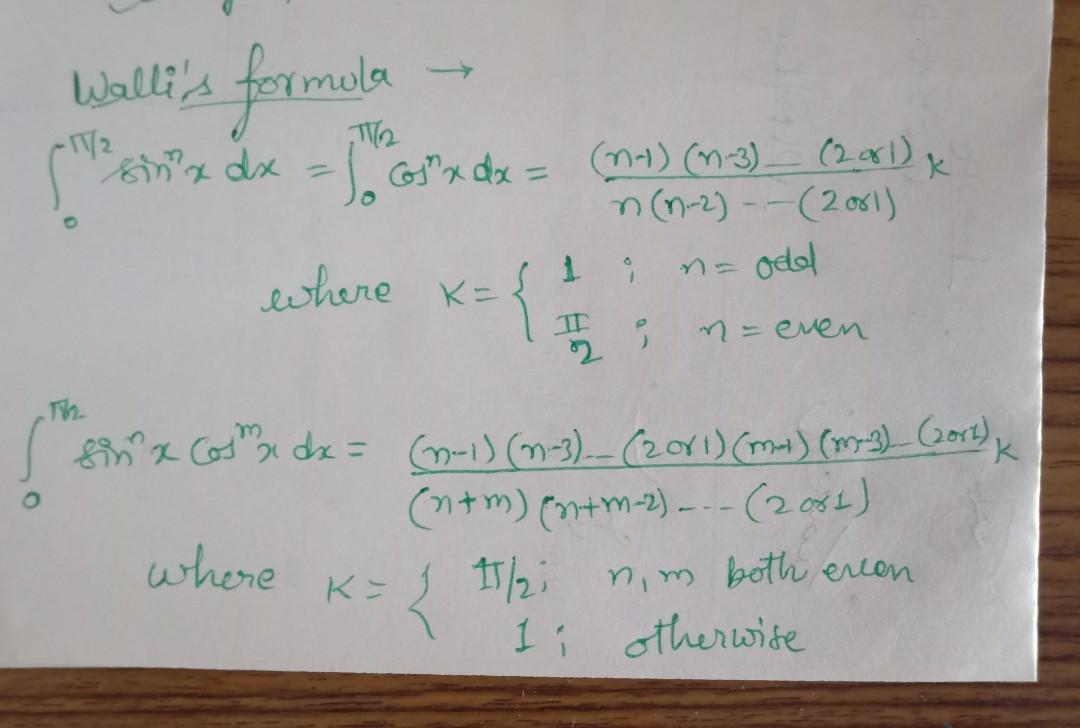 Walli's formula →
∫₀^π/2 sinⁿx dx = ∫₀^π/2 cosⁿx dx = (n-1) (n-3) _ (2 or 1) / n (n-2) --- (2 or 1) K
where K = { 1 ; n = odd
π/2 ; n = even
∫₀^π/2 sinⁿx cosᵐx dx = (n-1) (n-3)_ _ (2 or 1) (m-1) (m-3)_ (2 or 1) / (n+m) (n+m-2) ---- (2 or 1) K
where K = { π/2 ; n, m both even
1 ; otherwise